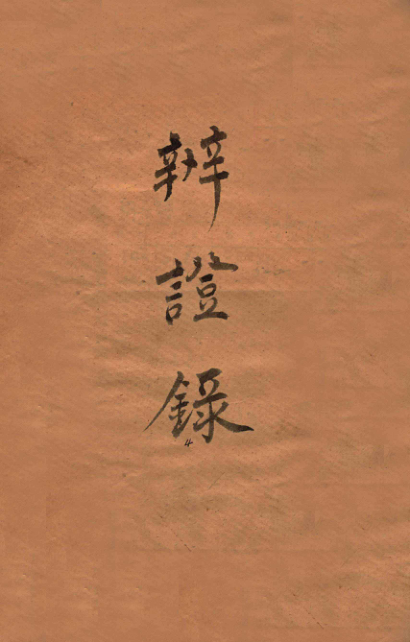 辨證錄